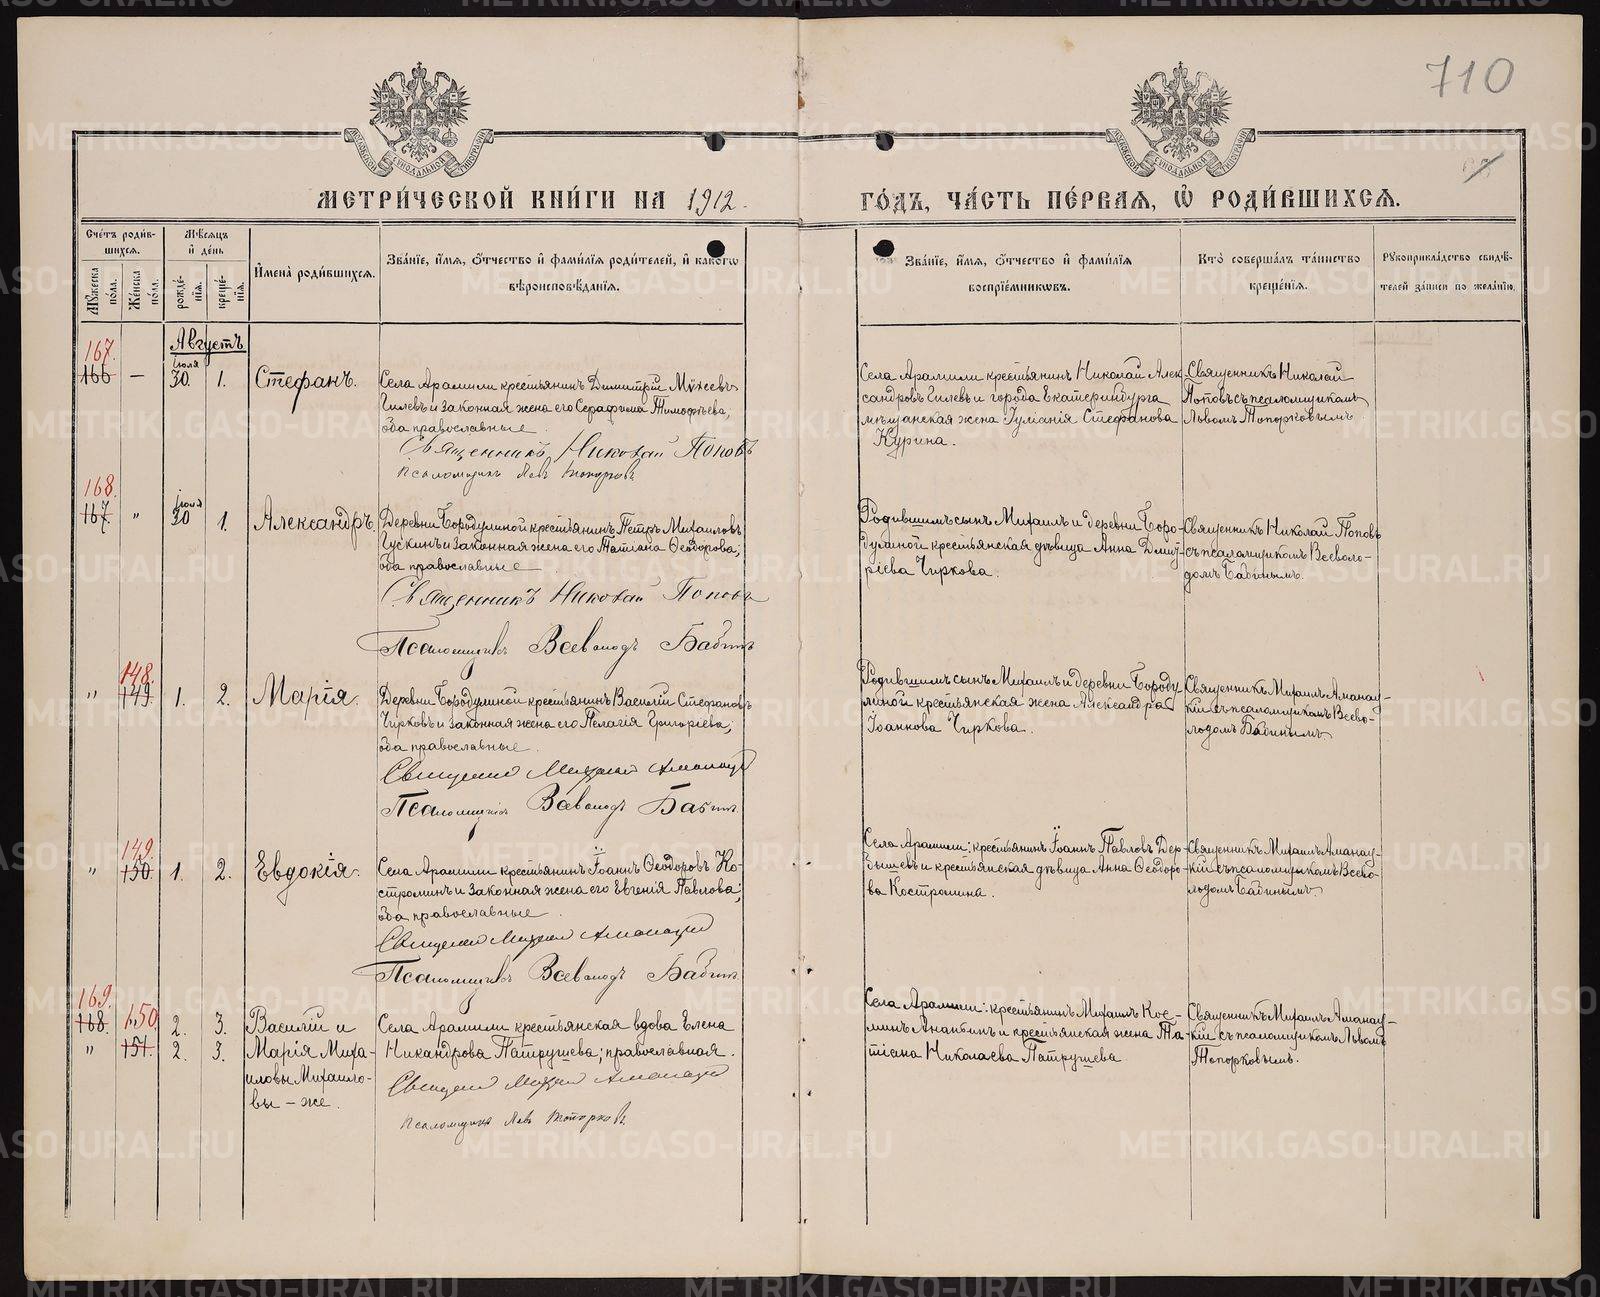 710
МЕТРИ́ЧЕСКОЙ КНИ́ГИ НА 1912.
ГО́ДЪ, ЧА́СТЬ ПЕ́РВАЯ, Ѽ РОДИ́ВШИХСЯ.
Сче́тъ роди́в-
шихся.
Мужеска по́ла.
Же́нска по́ла.
Мѣ́сяцъ и де́нь
рожде́-
нія.
креще́-
нія.
Имена̀ роди́вшихся.
Зва́ніе, и́мя, ѻ́тчество и фами́лія роди́телей, и како́гѡ
вѣроисповѣ́данія.
Зва́ніе, и́мя, ѻ́тчество и фами́лія
воспріе́мниковъ.
Кто̀ соверша́лъ та́инство
креще́нія.
Рукоприкла́дство свидѣ́-
телей за́писи по жела́нію.
Августъ
167.
166 — іюля 30. 1. Стефанъ.
Села Арамили крестьянинъ Димитрій Моисеевъ
Силевъ и законная жена его Серафима Тимофѣева;
оба православные.
Священникъ Николай Поповъ
Псаломщикъ Левъ Топорковъ
Села Арамили крестьянинъ Николай Алек-
сандровъ Силевъ и города Екатеринбурга
мѣщанская жена Гуманія Стефанова
Курина.
Священникъ Николай
Поповъ съ псаломщикомъ
Львомъ Топорковымъ
168.
167. " іюля 30 1. Александръ.
Деревни Бородулиной крестьянинъ Петръ Михаиловъ
Гускинъ и законная жена его Татіана Ѳеодорова;
оба православные
Священникъ Николай Поповъ
Псаломщикъ Всеволодъ Бабинъ
Родившимъ сынъ Михаилъ и деревни Боро-
дулиной крестьянская дѣвица Анна Димит-
ріева Чиркова.
Священникъ Николай Поповъ
съ псаломщикомъ Всеволо-
домъ Бабинымъ.
148.
" 149. 1. 2. Марія.
Деревни Бородулиной крестьянинъ Василій Стефановъ
Чирковъ и законная жена его Пелагія Григоріева;
оба православные.
Священникъ Михаилъ
Псаломщикъ Всеволодъ Бабинъ
Родившимъ сынъ Михаилъ и деревни Бороду-
линой крестьянская жена Александра
Іоаннова Чиркова.
Священникъ Михаилъ Аманац-
кій съ псаломщикомъ Всево-
лодомъ Бабинымъ
149.
" 150. 1. 2. Евдокія.
Села Арамили крестьянинъ Іоаннъ Ѳеодоровъ Ко-
строминъ и законная жена его Евгенія Павлова;
оба православные.
Священникъ Михаилъ
Псаломщикъ Всеволодъ Бабинъ
Села Арамили: крестьянинъ Іоаннъ Павловъ Дер-
бышевъ и крестьянская дѣвица Анна Ѳеодоро-
ва Костромина.
Священникъ Михаилъ Аманац-
кій съ псаломщикомъ Всево-
лодомъ Бабинымъ
169. 150
168. 151. 2. 3. Василій и
" 2. 3. Марія Миха-
иловы Михаило-
вы-же.
Села Арамили крестьянская вдова Елена
Никандрова Патрушева; православная.
Священникъ Михаилъ
Псаломщикъ Левъ Топорковъ
Села Арамили: крестьянинъ Михаилъ Кос-
минъ Ананьинъ и крестьянская жена Та-
тіана Николаева Патрушева
Священникъ Михаилъ Аманац-
кій съ псаломщикомъ Львомъ
Топорковымъ.
METRIKI.GASO-URAL.RU